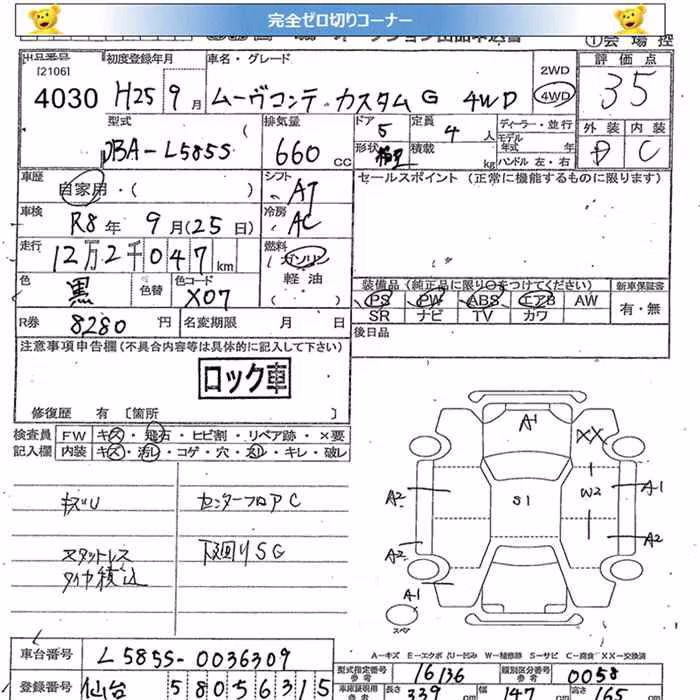 完全ゼロ切りコーナー
①会場控
[2106] 初度登録年月 車名・グレード 評価点
4030 H25 9月 ムーヴコンテ カスタム G 4WD 2WD 4WD 35
型式 排気量 ドア 5 定員 4人 ディーラー・並行 外装 内装
DBA-L585S 660cc 形状 積載 kg モデル年式 年 ハンドル 左・右 D C
車歴 自家用・( ) シフト AT セールスポイント (正常に機能するものに限ります)
車検 R8年 9月(25日) 冷房 AC
走行 12万2千047km 燃料 ガソリン
色 黒 色替 色コード X07 軽油 ( )
装備品(純正品に限り○をつけてください) 新車保証書
PS PW ABS エアB AW 有・無
R券 8280円 名変期限 月 日 SR ナビ TV カワ
後日品
注意事項申告欄(不具合内容等は具体的に記入して下さい)
ロック車
修復歴 有 〔箇所 〕
検査員 FW キズ・飛石・ヒビ割・リペア跡・×要
記入欄 内装 キズ・汚レ・コゲ・穴・スレ・キレ・破レ
キズU センターフロアC
スタットレス 下廻りSG
タイヤ積込
A1 XX
A2 S1 W2 A1
A2 A2
A1
スペア
A=キズ E=エクボ U=凹ミ W=補修跡 S=サビ C=腐食 XX=交換済
車台番号 L585S-0036309 型式指定番号 参考 16136 類別区分番号 参考 0058
登録番号 仙台 580 5 6315 車庫証明用 参考 長さ 339cm 幅 147cm 高さ 165cm